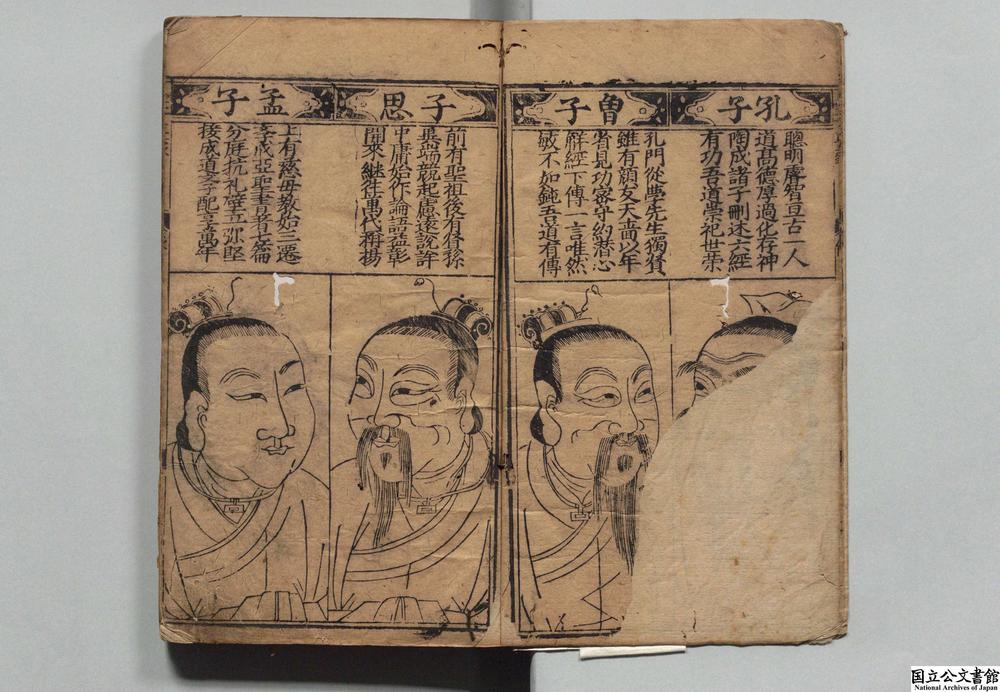 孔子
聰明睿智亘古一人
道高德厚過化存神
陶成諸子刪述六經
有功吾道崇祀世榮
曾子
孔門從學先生獨賢
雖有顔友天嗇以年
省見功密守約潜心
解經下傳一言唯然
敏不如鈍吾道有傳
子思
前有聖祖後有孫
異端競起慮遠說詐
中庸始作論語益彰
開來継往萬代稱揚
孟子
上有慈母教始三遷
成亞聖書著七篇
分庭抗礼壁立弥堅
接成道配享萬年
国立公文書館
National Archives of Japan